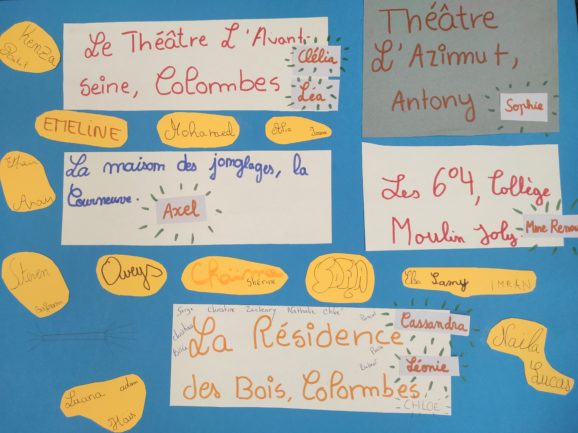 Kenza
Le Théâtre L'Avant
Seine, Colombes
Clélia
Léa
Théâtre
L'Azimut,
Antony
Sophie
EMELINE
Mohamed
La maison des jonglages, la
Courneuve.
Axel
Les 6°4, Collège
Moulin Joly.
Mme Renou
Ethan
Steven
Oweys
Chaïma
Shérine
Ella Lamy IMRAN
Serge Christine Nathalie Chloé
La Résidence
des Bois, Colombes
Cassandra
Léonie
CHLOÉ
Naïla
Lucas
Luana adam